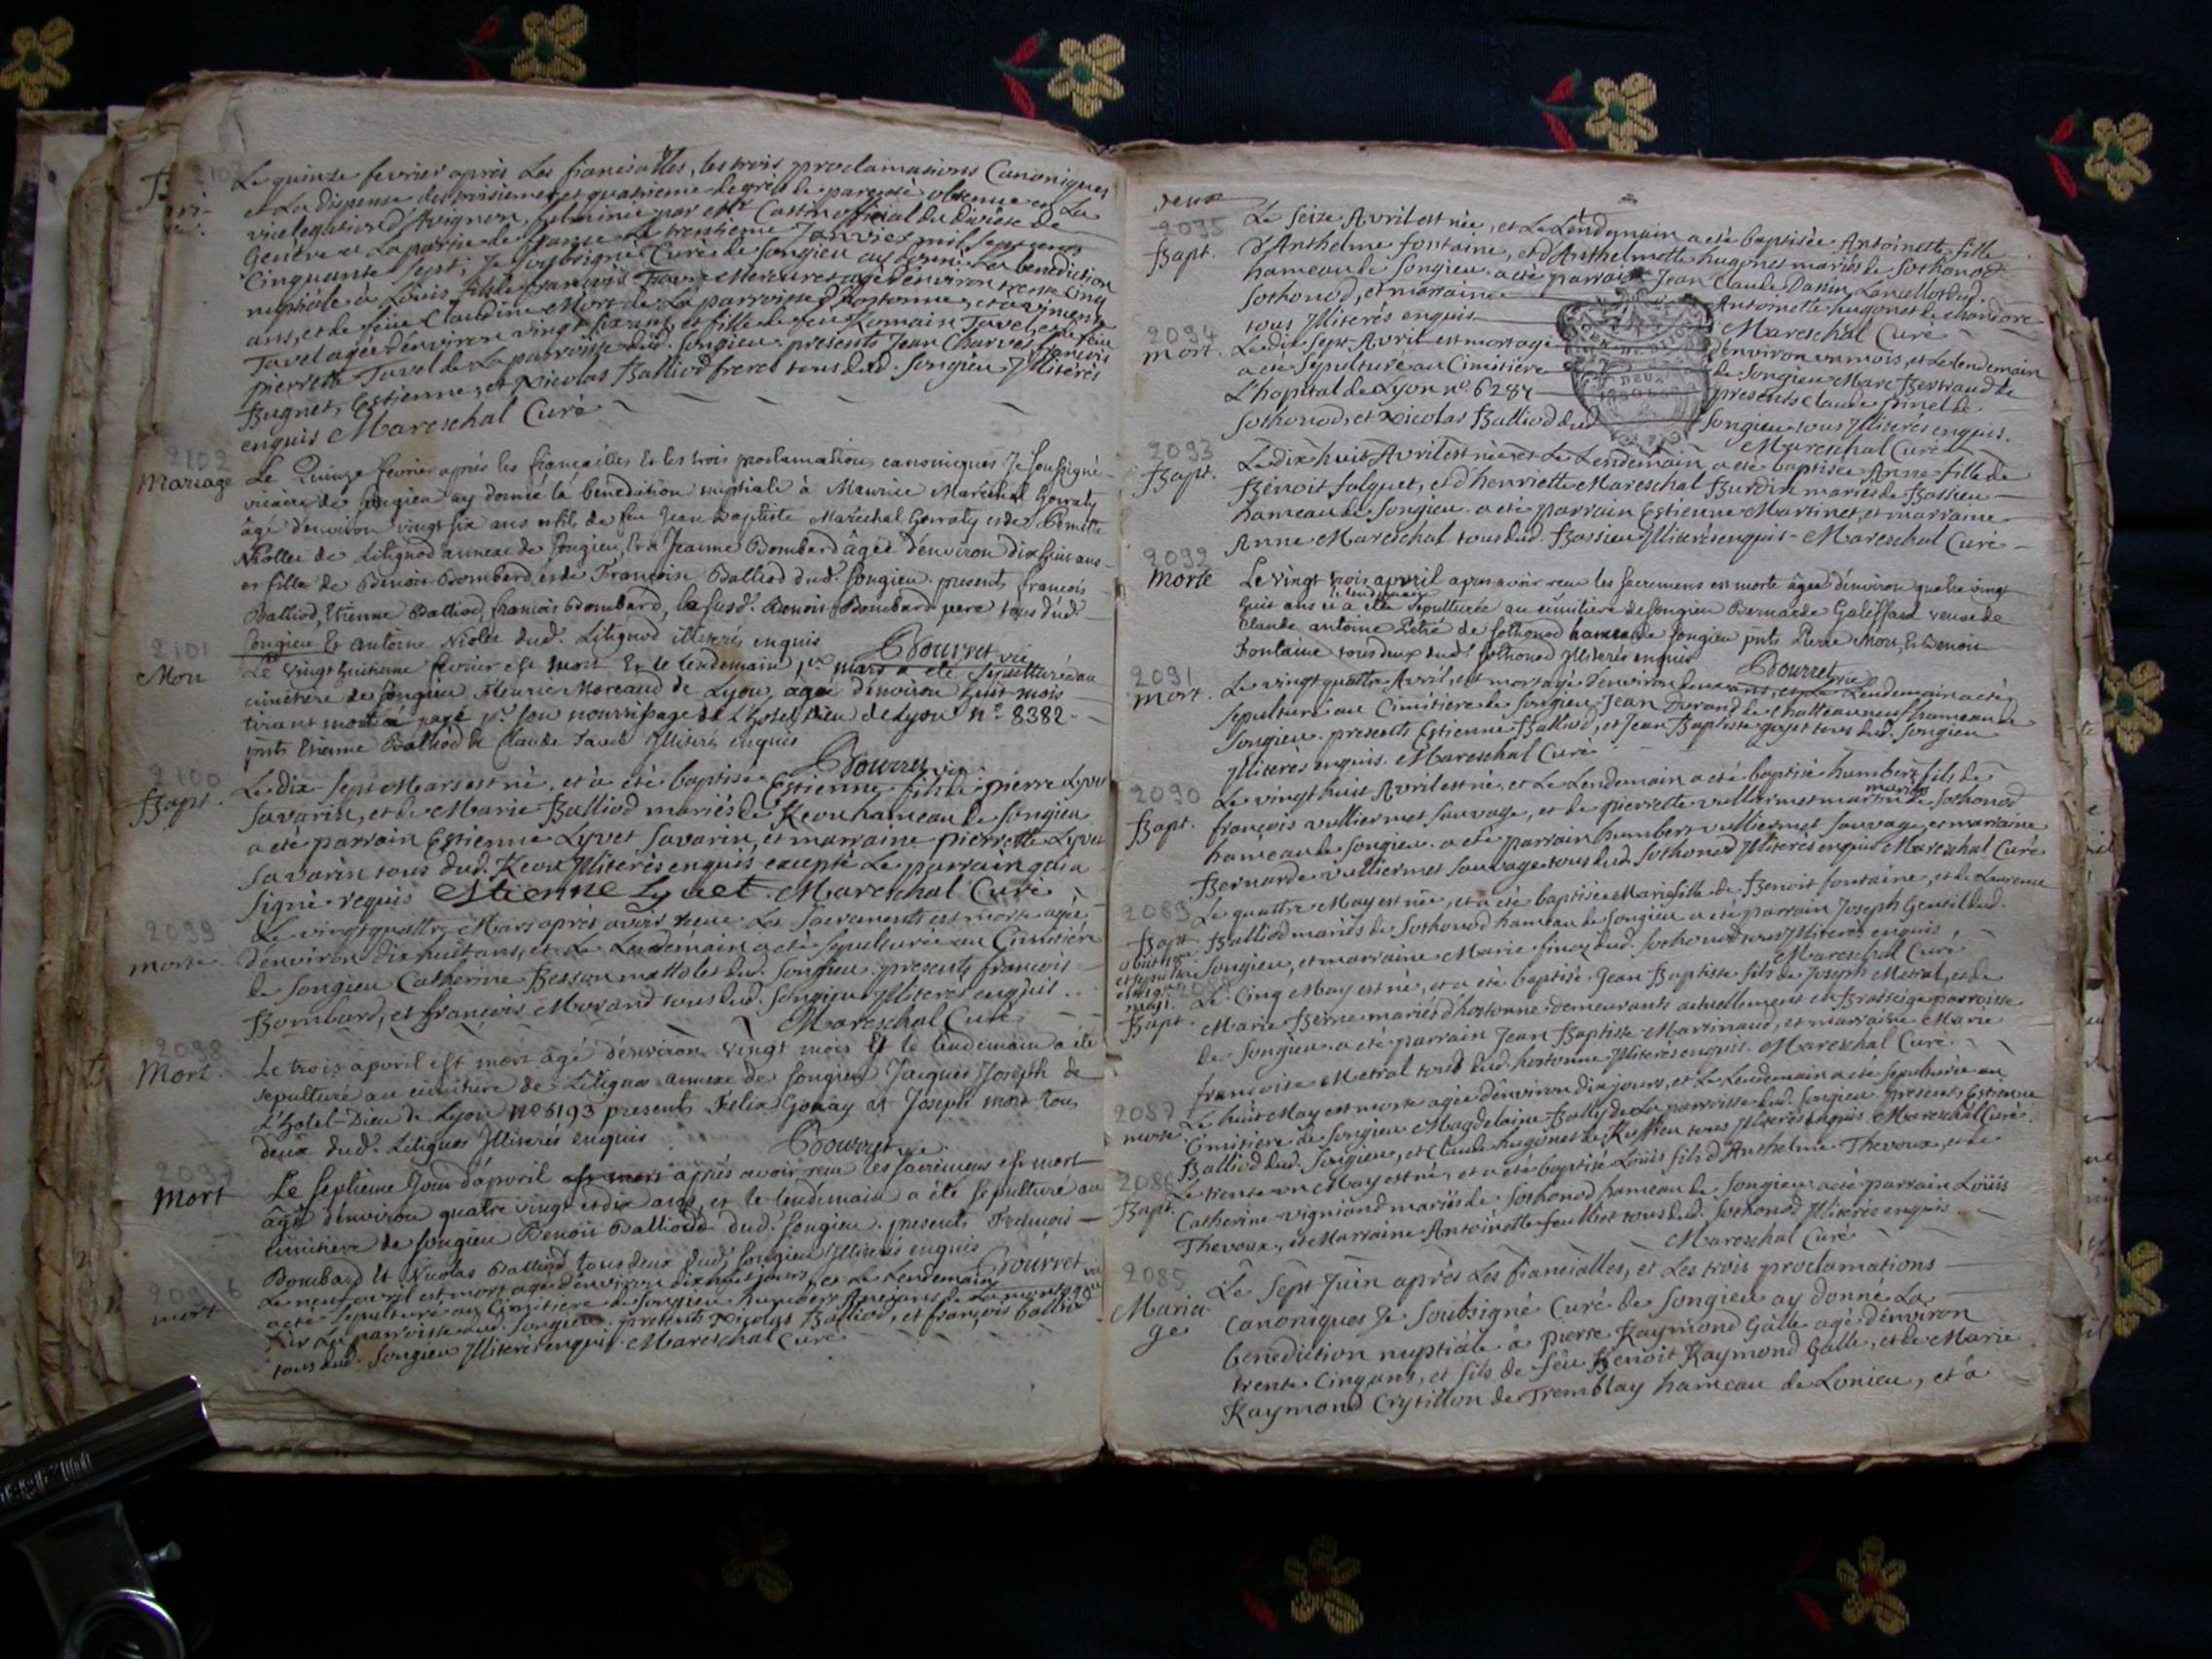 2103
Le quinze fevrier aprés les fiancialles, les trois proclamations Canoniques
et La dispense du troisieme et quatrieme degrés de parenté obtenue en La
vicelegation d'Avignon, fulminée par Mr Castin official du Diocèse de
Genève en La partie de france Le trentieme Janvier mil sept cents
Cinquante Sept; Je soubsigné Curé de Songieu ay donné La benediction
nuptiale à Loüis fils de françois agé d'environ trente cinq
ans, et de feüe Claudine Mort de La parroisse d'hostonne, et a
Tavel agée d'environ vingt six ans, et fille de feu Romain Tavel, et de feüe
pierrette Tavel de La parroisse dud. Songieu. presents Jean Charvet, françois
Bugnet, Estienne, et Nicolas Balliod freres tous dud. Songieu Jlliterés
enquis Mareschal Curé
2102
Mariage Le Quinze fevrier aprés les fiançailles Et les trois proclamations canoniques Je soussigné
vicaire de Songieu ay donné la bénédiction nuptiale à Maurice Maréchal Gorraty
âgé d'environ vingt six ans et fils de feu Jean Baptiste Maréchal Gorraty et de Pernette
Niollet de Litignod annexe de Songieu, Et a Jeanne Bombard âgée d'environ dix huit ans
et fille de Benoit Bombard, et de Françoise Balliod dud. Songieu. presents françois
Balliod, Etienne Balliod, francois Bombard, le susd. Benoit Bombard pere tous dud.
Songieu Et antoine Niolet dud. Litignod illiterés enquis Bourret vic
2101
Mort Le vingt huitieme fevrier est mort Et le lendemain 1er mars a eté sepulturé au
cimetiere de Songieu fleurie Moreaud de Lyon, agée d'environ huit mois
pr. son nourrissage de L'hotel Dieu de Lyon n° 8382
pnts Etienne Balliod et Claude Tavel Jlliterés enquis
Bourret vic
2100
Bapt. Le dix sept Mars est né, et à été baptisé Estienne fils de pierre Lyvet
Savarin, et de Marie Balliod mariés de Keon hameau de Songieu
a eté parrain Estienne Lyvet Savarin, et marraine pierrette Lyvet
Savarin tous dud. Keon Jlliterés enquis excepté Le parrain qui a
signé requis Etienne Lyuet. Mareschal Curé
2099
morte. Le vingt quattre Mars aprés avoir receu Les Sacrements est morte agée
d'environ dix huit ans, et Le Lendemain a eté sepulturée au Cimitiére
de Songieu Catherine Besson mattolet dud. Songieu. presents françois
Bombard, et françois Morand tous dud. Songieu Jlliterés enquis
Mareschal Curé
2098
Mort. Le trois apvril est mort âgé d'environ vingt mois Et le lendemain a été
sepulturé au cimitiere de Litignod annexe de Songieu Jacques Joseph de
L'hotel-Dieu de Lyon n° 6193 presents Felix Gonay et Joseph mord tous
deux dud. Litignod Jlliterés enquis Bourret vic
2097
Mort Le septieme Jour d'apvril est mort aprés avoir receu les sacremens est mort
âgé d'environ quatre vingt et dix ans, et le lendemain a été sepulturé au
cimitiere de Songieu Benoit Balliod dud. Songieu. presents francois
Bombard Et Nicolas Balliod tous deux dud. Songieu Jlliterés enquis Bourret vic
2096
mort Le neuf avril est mort agé d'environ dix huit jours, et Le Lendemain
a eté sepulturé au Cimitiere de Songieu humbert
Sur La parroisse dud. Songieu. presents Nicolas Balliod, et françois balliod
tous dud. Songieu Jlliterés enquis. Mareschal Curé
deux
2095
Bapt. Le Seize Avril est née, et Le Lendemain a eté baptisée Antoinette fille
d'Anthelme fontaine, et d'Anthelmette hugonet mariés de Sothonod
hameau de Songieu. a eté parrain Jean Claude Dassin Lancellot dud.
Sothonod, et marraine Antoinette hugonet de chandore
tous Jlliterés enquis Mareschal Curé
2094
mort. Le dix sept Avril est mort agé d'environ un mois, et Le Lendemain
a eté sepulturé au Cimitiére de Songieu Marc Bertrand de
L'hopital de Lyon n°. 6287 presents Claude pinel de
Sothonod, et Nicolas Balliod dud. Songieu tous Jlliterés enquis.
Mareschal Curé
2093
Bapt. Le dix huit Avril est née et Le Lendemain a eté baptisée Anne fille de
Benoit folquet, et d'henriette Mareschal Burdin mariés de Bassieu
hameau de Songieu. a eté parrain Estienne Martinet, et marraine
Anne Mareschal tous dud. Bassieu Jlliterés enquis. Mareschal Curé
2092
Morte Le vingt trois apvril apres avoir receu les sacremens est morte âgée d'environ quatre vingt
huit ans et le lendemain a eté sepulturée au cimitiere de Songieu Bernarde Galiffard veuve de
Claude antoine Pétré de sothonod hameau de Songieu pnts Pierre Mort, Et Benoit
Fontaine tous deux dud. Sothonod Jlliterés enquis Bourret vic
2091
mort. Le vingt quattre Avril, est mort agé d'environ deux ans, et Le Lendemain a eté
sepulturé au Cimitiére de Songieu Jean Durand de Chatteauneuf hameau de
Songieu. presents Estienne Balliod, et Jean Baptiste gojet tous dud. Songieu
Jlliterés enquis. Mareschal Curé
2090
Bapt. Le vingt huit Avril est né, et Le Lendemain a eté baptisé humbert fils de
françois vulliermet sauvage, et de pierrette vulliermet mariés de Sothonod
hameau de Songieu. a eté parrain humbert vulliermet sauvage, et marraine
Bernarde vulliermet sauvage tous dud. Sothonod Jlliterés enquis Mareschal Curé
2089
Bapt. Le quattre May est née, et a eté baptisée Marie fille de Benoit fontaine, et de Laurence
Balliod mariés de Sothonod hameau de Songieu a eté parrain Joseph Gentil dud.
Songieu, et marraine Marie finoz dud. Sothonod tous Jlliterés enquis
Mareschal Curé
2088
Bapt. Le Cinq May est né, et a eté baptisé Jean Baptiste fils de Joseph Metral, et de
Marie Berne mariés d'hostonne demeurants actuellement en Brasseige parroisse
de Songieu. a eté parrain Jean Baptiste Martinand, et marraine Marie
francoise Metral tous dud. hostonne Jlliterés enquis. Mareschal Curé
2087
morte. Le huit May est morte agée d'environ dix jours, et Le Lendemain a eté sepulturée au
Cimitiere de Songieu Magdelaine Bolly de La parroisse dud. Songieu. presents Estienne
Balliod dud. Songieu, et Claude hugonet de Ruffieu tous Jlliterés enquis Mareschal Curé
2086
Bapt. Le trente un May est né, et a eté baptisé Loüis fils d'Anthelme Thevoux, et de
Catherine vigniand mariés de Sothonod hameau de Songieu. a eté parrain Loüis
Thevoux, et Marraine Antoinette feulliet tous dud. Sothonod Jlliterés enquis
Mareschal Curé
2085
Maria-
ge Le Sept Juin aprés Les fiancialles, et Les trois proclamations
Canoniques Je Soubsigné Curé de Songieu ay donné La
benediction nuptiale à Pierre Raymond Galle agé d'environ
trente Cinq ans, et fils de feu Benoit Raymond Galle, et de Marie
Raymond Crytillon de Tremblay hameau de Lonieu, et à